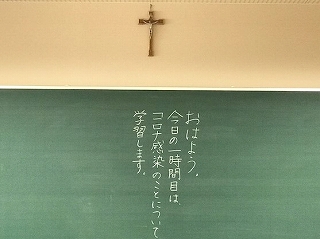 おはよう。
今日の一時間目は
コロナ感染のことについて
学習します。